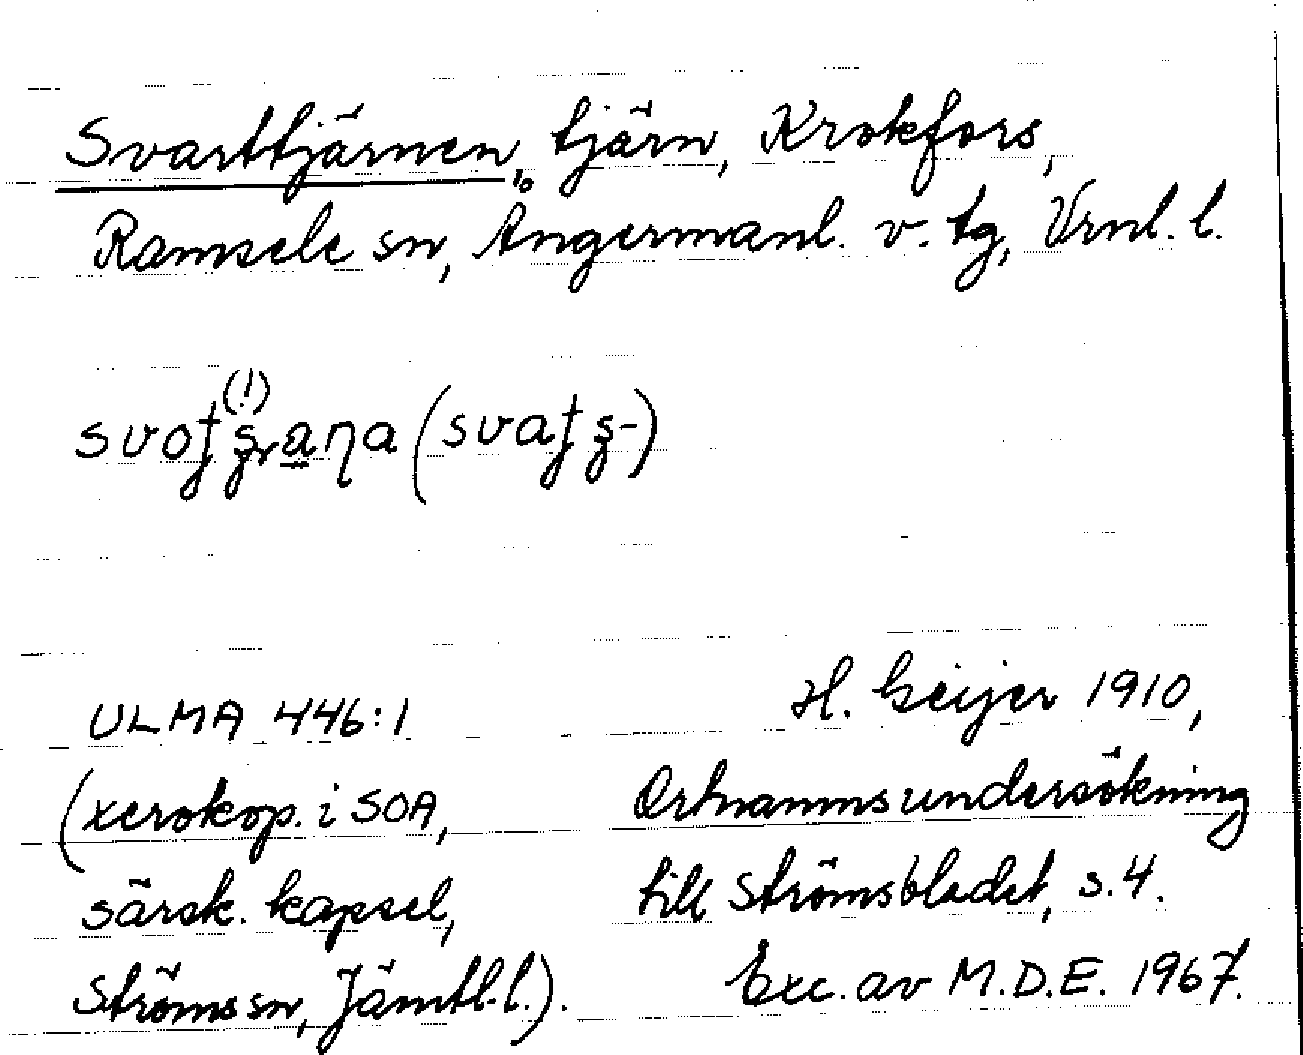 Svarttjärnen, tjärn, Krokfors,
Ramsele sn, Ångermanl. v. tg, Vrnl. l.
(!)
ULMA 446:1
(xerokop. i SOA,
särsk. kapsel,
Ströms sn, Jämtl. l.).
H. Geijer 1910,
Ortnamnsundersökning
till Strömsbladet, s. 4.
Exc. av M.D.E. 1967.